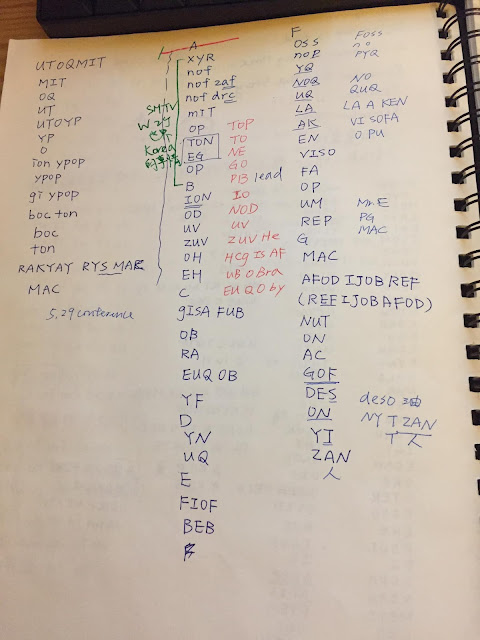 UTOQMIT
MIT
OQ
UT
UTOYP
YP
O
ion ypop
ypop
gi ypop
boc ton
boc
ton
RAKYAY RYS MAK
MAC
5.29 conference
A
XYR
nof
nof zaf
nof drc
mit
OP TOP
TON TO
EG NE
OP GO
B PIB lead
ION IO
OD NOD
UV UV
ZUV ZUV He
OH HCg IS AF
EH UB OBra
C EU Q O by
gISA FUB
OB
RA
EUQ OB
YF
D
YN
UQ
E
FIOF
BEB
SHTV
Korea
F
OSS FOSS
noP no
YQ PYQ
NOQ NO
UQ QUQ
LA LA A KEN
AK VI SOFA
EN O PU
VISO
FA
OP
UM Mr. E
REP PG
G MAC
MAC
AFOD IJOB REF
(REF IJOB AFOD)
NUT
ON
AC
GOF
DES deso
ON NY T ZAN
YI T 人
ZAN
人